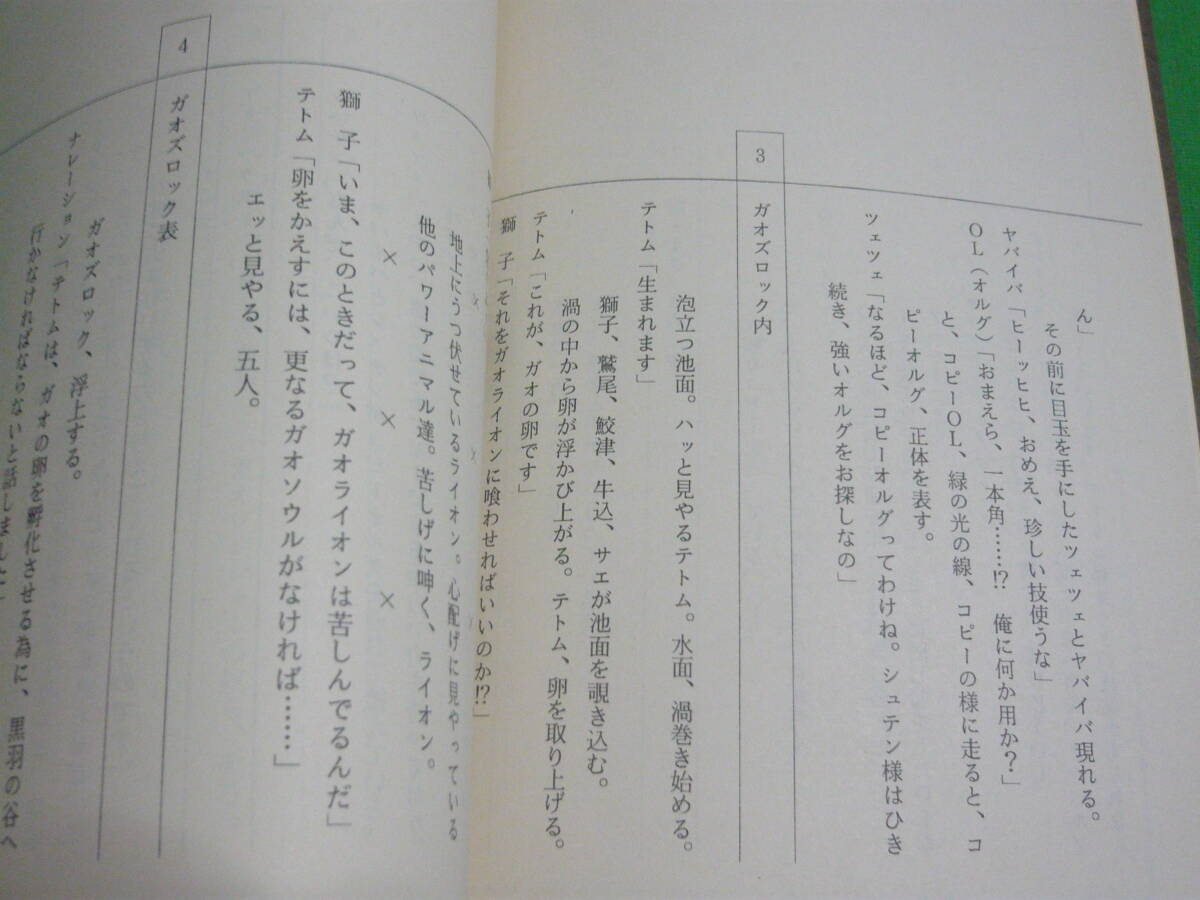 ん」
その前に目玉を手にしたツェツェとヤバイバ現れる。
ヤバイバ「ヒーッヒヒ、おめえ、珍しい技使うな」
OL(オルグ)「おまえら、一本角……!? 俺に何か用か?」
と、コピーOL、緑の光の線、コピーの様に走ると、コ
ピーオルグ、正体を表す。
ツェツェ「なるほど、コピーオルグってわけね。シュテン様はひき
続き、強いオルグをお探しなの」
3
ガオズロック内
泡立つ池面。ハッと見やるテトム。水面、渦巻き始める。
テトム「生まれます」
獅子、鷲尾、鮫津、牛込、サエが池面を覗き込む。
渦の中から卵が浮かび上がる。テトム、卵を取り上げる。
テトム「これが、ガオの卵です」
獅 子「それをガオライオンに喰わせればいいのか!?」
× × ×
地上にうつ伏せているライオン。心配げに見やっている
他のパワーアニマル達。苦しげに呻く、ライオン。
× × ×
獅 子「いま、このときだって、ガオライオンは苦しんでるんだ」
テトム「卵をかえすには、更なるガオソウルがなければ……」
エッと見やる、五人。
4
ガオズロック表
ガオズロック、浮上する。
ナレーション「テトムは、ガオの卵を孵化させる為に、黒羽の谷へ
行かなければならないと話しました